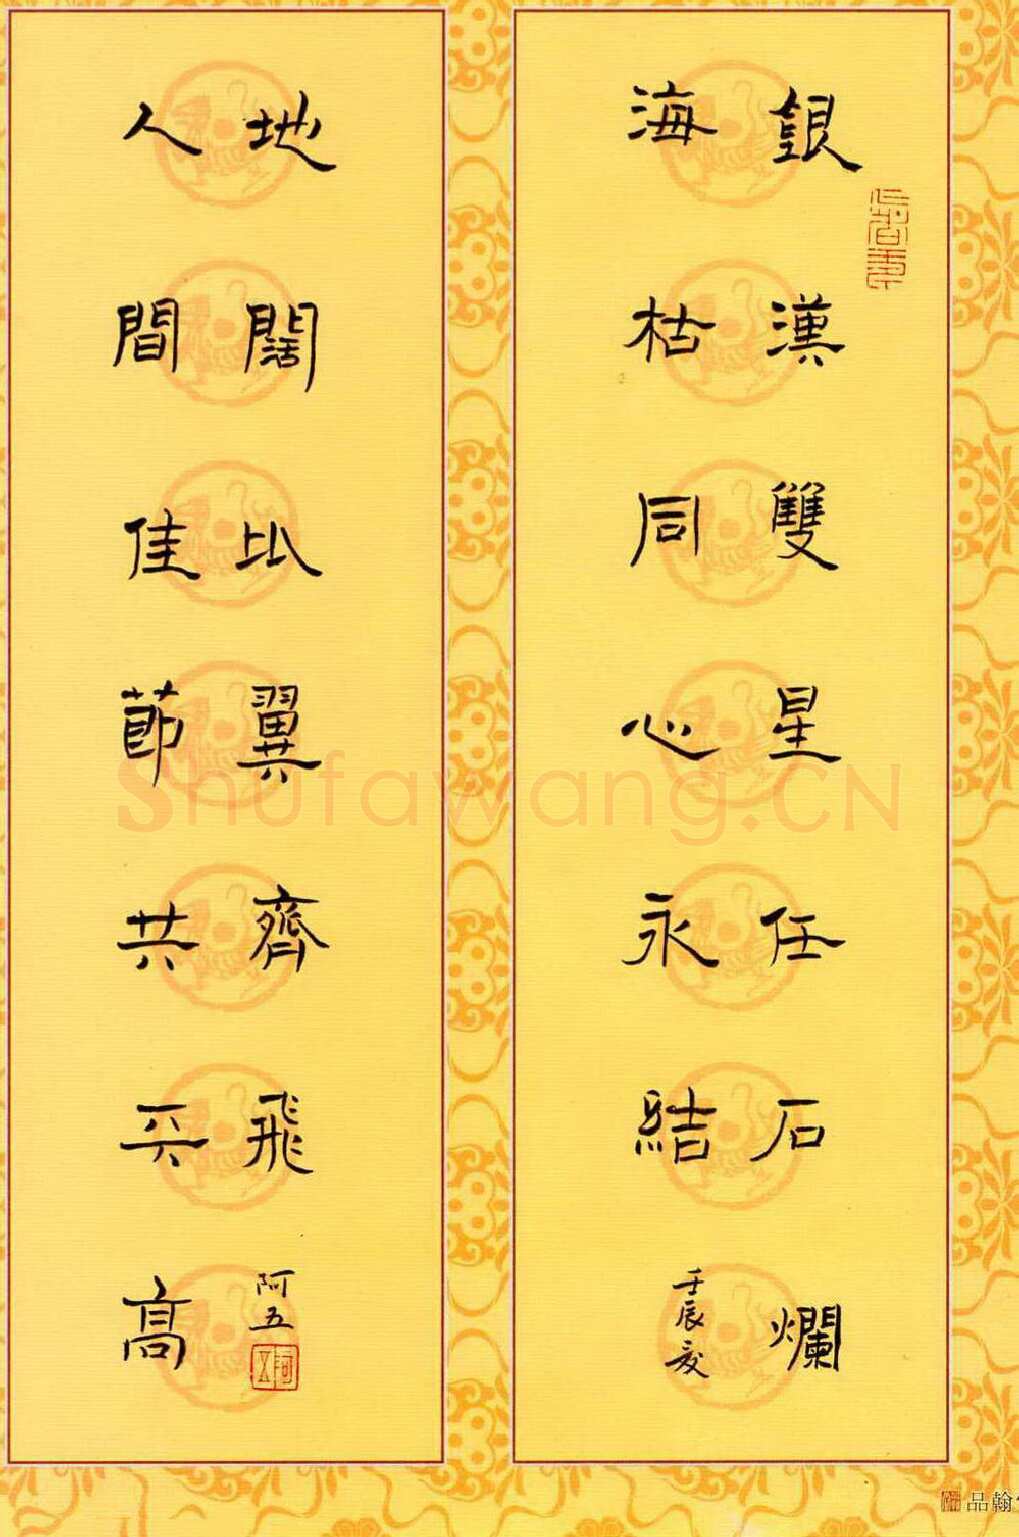 銀漢雙星任石爛
海枯同心永結
壬辰夏
人間佳節共天高
地闊比翼齊飛
阿五
阿五
Shufawang.CN
品翰